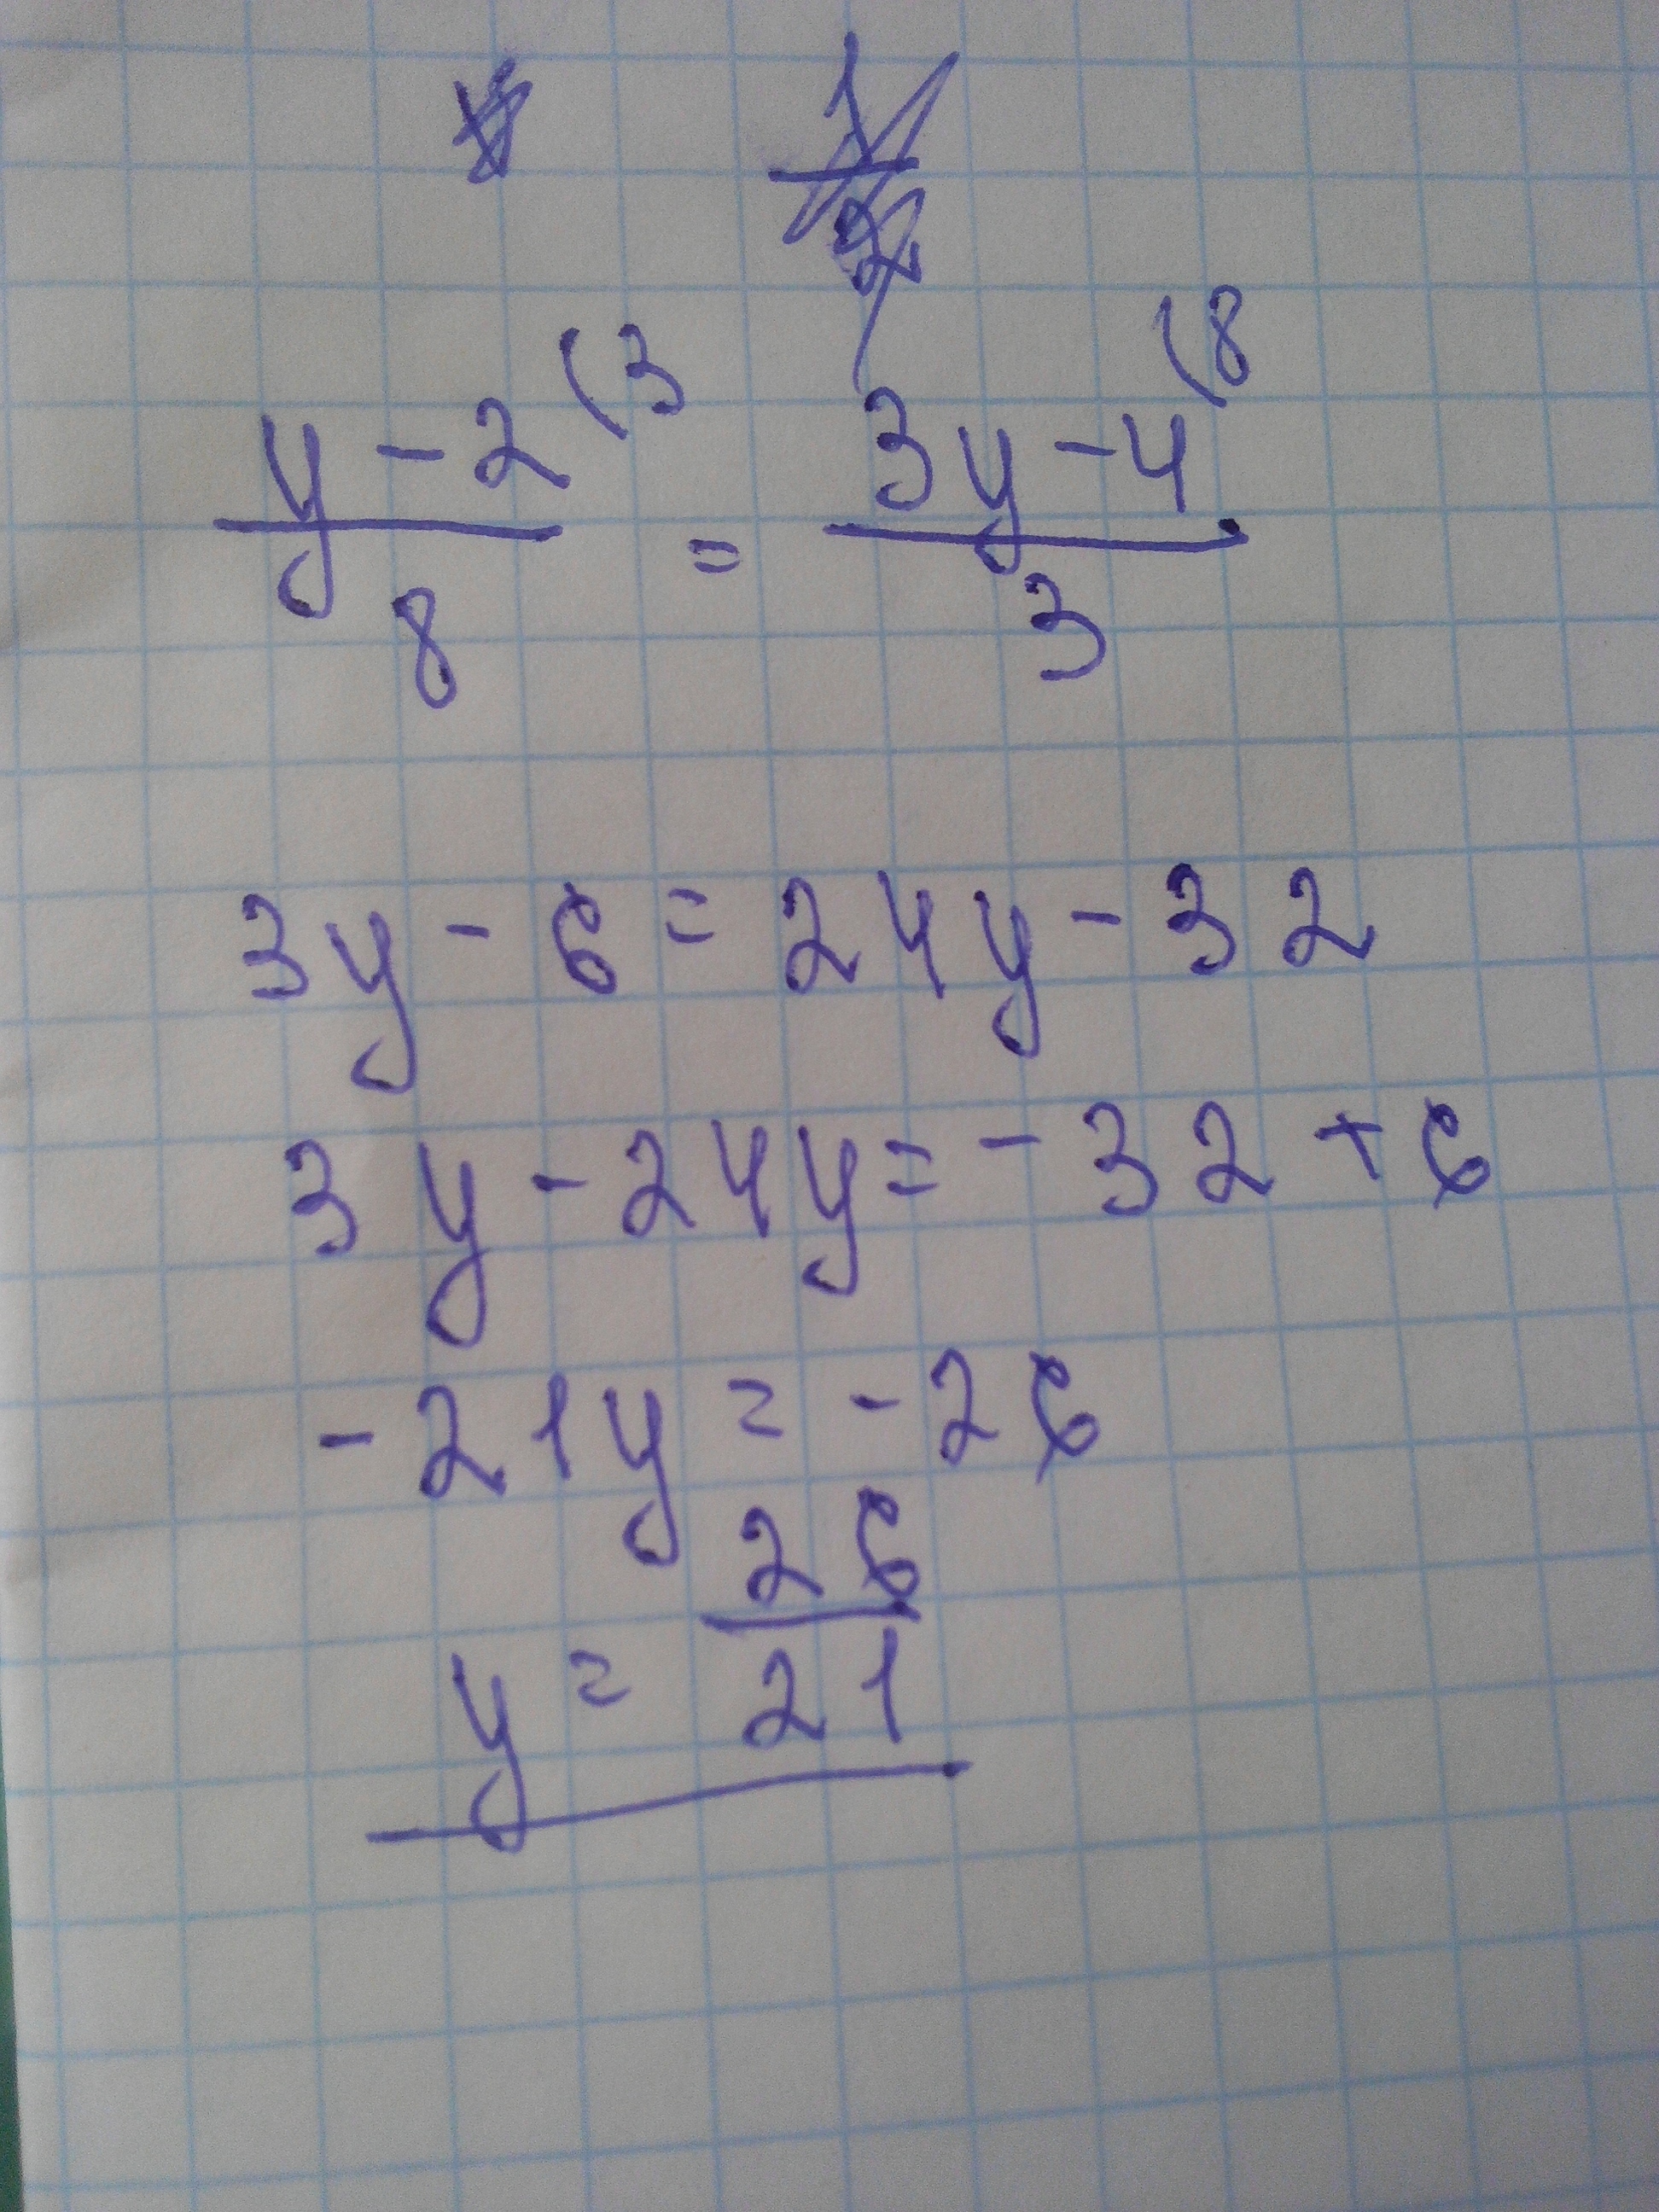 y-2 (3 / 8 = 3y-4 (8 / 3
3y - 6 = 24y - 32
3y - 24y = - 32 + 6
- 21y = - 26
y = 26 / 21